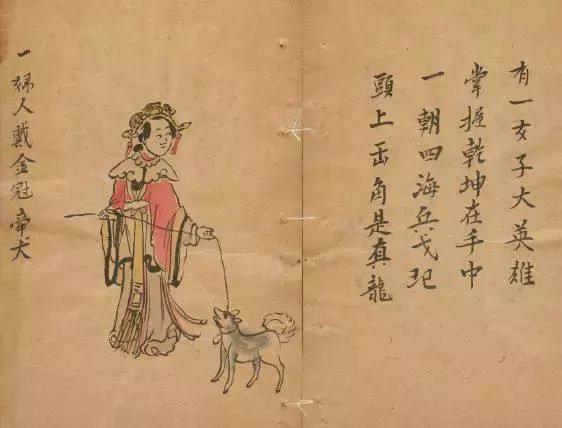 有一女子大英雄
掌握乾坤在手中
一朝四海兵戈
頭上缶角是真龍
一婦人戴金冠帝犬